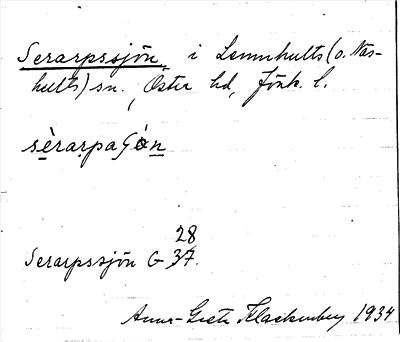 Serarpssjön, i Lemnhults (o. Näs-
hults) sn., Öster hd, Jönk. l.
28
Serarpssjön G 37.
Anna-Greta Klackenberg 1934